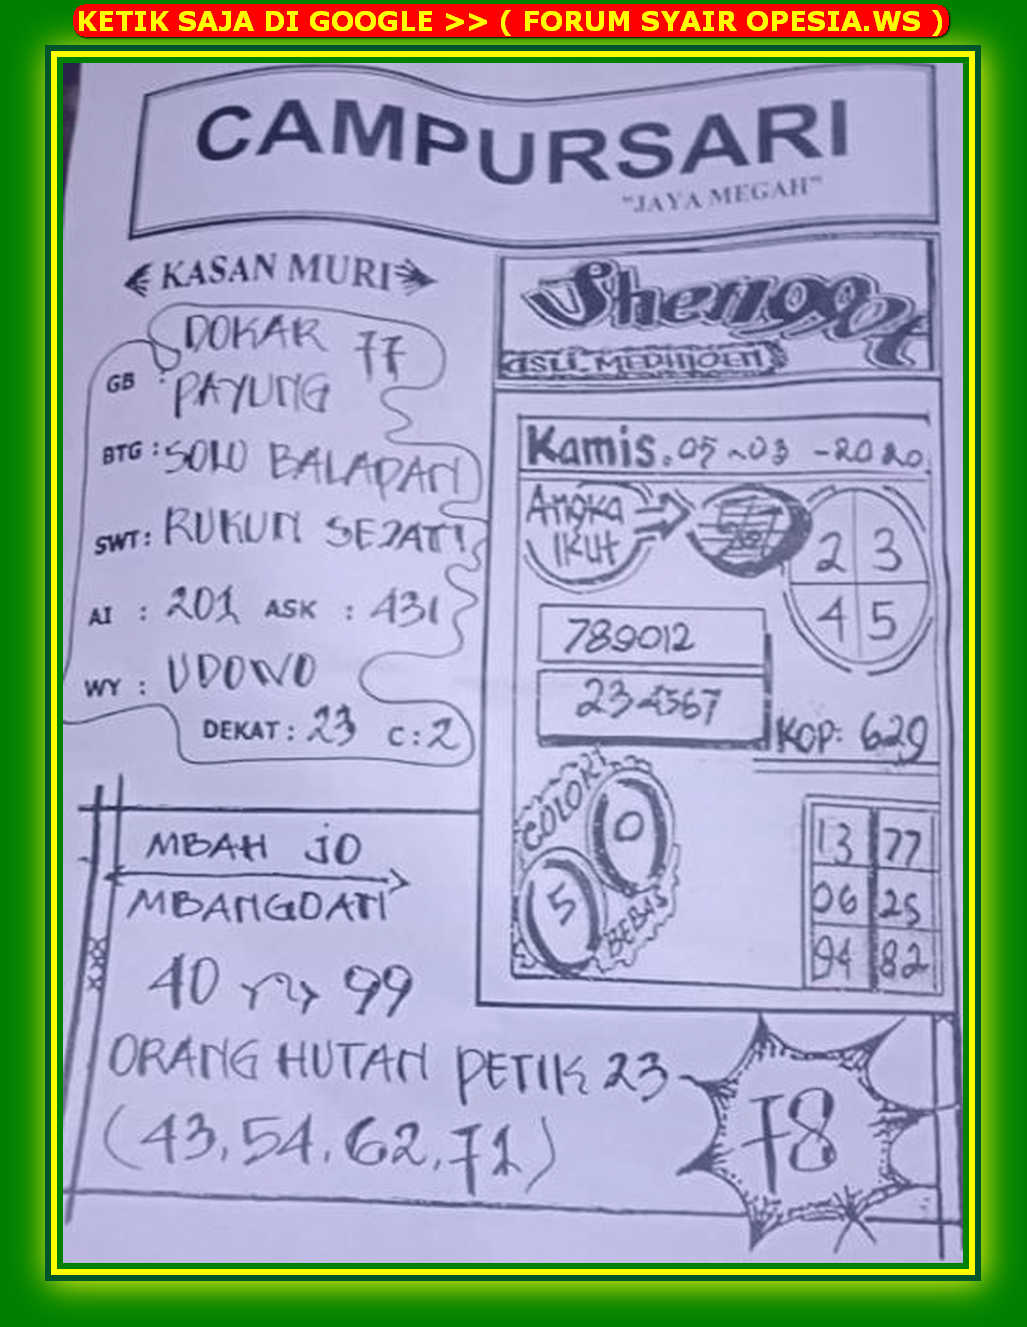 KETIK SAJA DI GOOGLE >> ( FORUM SYAIR OPESIA.WS )
CAMPURSARI
"JAYA MEGAH"
KASAN MURI
GB : DOKAR 77
PAYUNG
BTG : SOLO BALAPAN
SWT : RUKUN SEJATI
AI : 201 ASK : 431
WY : UDOWO
DEKAT : 23 C : 2
Shengoot
ASLI MEDHIOEN
Kamis. 05~03-2020.
Angka
IKUT
2 3
4 5
789012
234567
KOP: 629
COLOK
0
5
BEBAS
13 77
06 25
94 82
MBAH JO
MBANGOATI
40 99
ORANG HUTAN PETIK 23
(43, 54, 62, 71)
78